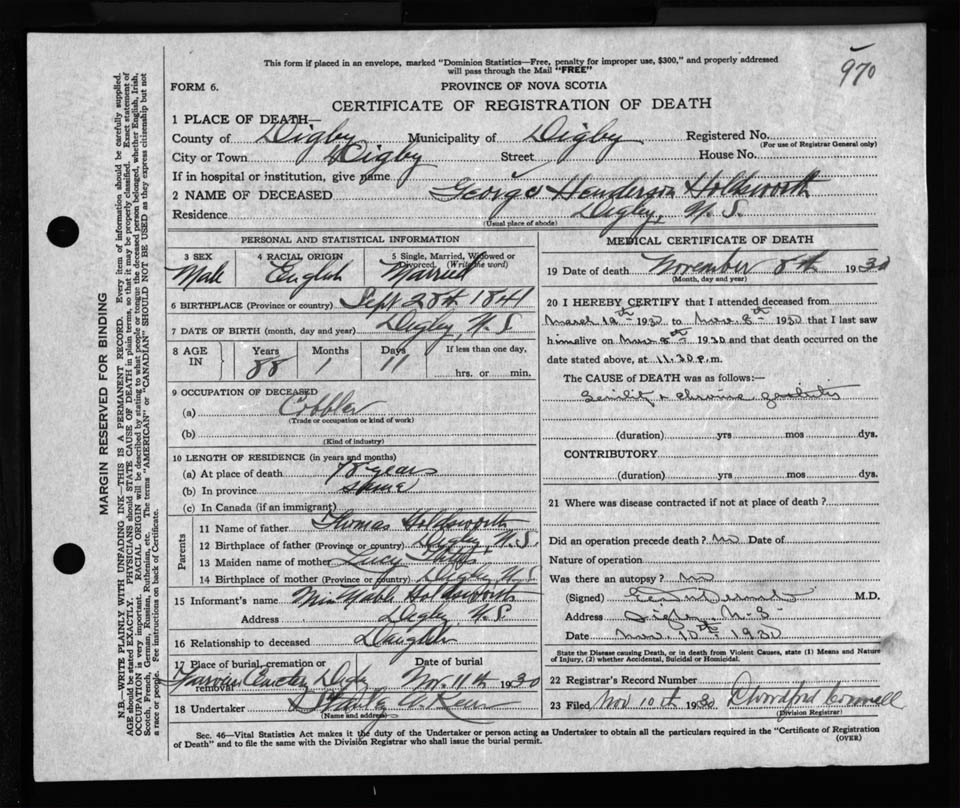 970
This form if placed in an envelope, marked "Dominion Statistics—Free, penalty for improper use, $300," and properly addressed
will pass through the Mail "FREE"
FORM 6.
PROVINCE OF NOVA SCOTIA
CERTIFICATE OF REGISTRATION OF DEATH
1 PLACE OF DEATH—
County of Digby Municipality of Digby Registered No.
(For use of Registrar General only)
City or Town Digby Street House No.
If in hospital or institution, give name
2 NAME OF DECEASED George Henderson Holdsworth
Residence Digby, N. S.
(Usual place of abode)
PERSONAL AND STATISTICAL INFORMATION
3 SEX Male
4 RACIAL ORIGIN English
5 Single, Married, Widowed or Divorced (Write the word) Married
6 BIRTHPLACE (Province or country) Sept 28th 1841
7 DATE OF BIRTH (month, day and year) Digby N. S.
8 AGE IN Years 88 Months 1 Days 11 If less than one day, hrs. or min.
9 OCCUPATION OF DECEASED
(a) Cobbler
(Trade or occupation or kind of work)
(b)
(Kind of industry)
10 LENGTH OF RESIDENCE (in years and months)
(a) At place of death 78 years
(b) In province same
(c) In Canada (if an immigrant)
Parents
11 Name of father Thomas Holdsworth
12 Birthplace of father (Province or country) Digby, N. S.
13 Maiden name of mother Lucy
14 Birthplace of mother (Province or country) Digby N. S.
15 Informant's name Holdsworth
Address Digby N. S.
16 Relationship to deceased Daughter
17 Place of burial, cremation or removal Digby
Date of burial Nov. 11th 1930
18 Undertaker
(Name and address)
MEDICAL CERTIFICATE OF DEATH
19 Date of death November 8th 1930
(Month, day and year)
20 I HEREBY CERTIFY that I attended deceased from
March 12th 1930 to Nov. 8th 1930 that I last saw
him alive on Nov. 8th 1930 and that death occurred on the
date stated above, at 11.30 p.m.
The CAUSE of DEATH was as follows:—
Senility & chronic
(duration) yrs mos dys.
CONTRIBUTORY
(duration) yrs mos dys.
21 Where was disease contracted if not at place of death?
Did an operation precede death? no Date of
Nature of operation
Was there an autopsy? no
(Signed) M.D.
Address Digby, N.S.
Date Nov. 10th 1930
State the Disease causing Death, or in death from Violent Causes, state (1) Means and Nature
of Injury, (2) whether Accidental, Suicidal or Homicidal.
22 Registrar's Record Number
23 Filed Nov 10th 1930
(Division Registrar)
Sec. 46—Vital Statistics Act makes it the duty of the Undertaker or person acting as Undertaker to obtain all the particulars required in the "Certificate of Registration
of Death" and to file the same with the Division Registrar who shall issue the burial permit.
(OVER)
MARGIN RESERVED FOR BINDING
N.B.—WRITE PLAINLY WITH UNFADING INK—THIS IS A PERMANENT RECORD. Every item of information should be carefully supplied.
AGE should be stated EXACTLY. PHYSICIANS should STATE CAUSE OF DEATH in plain terms, so that it may be properly classified. Exact statement of
OCCUPATION is very important. RACIAL ORIGIN will be described by stating to what people or tongue the deceased person belonged, whether English, Irish,
Scotch, French, German, Russian, Ruthenian, etc. The terms "AMERICAN" or "CANADIAN" SHOULD NOT BE USED as they express citizenship but not
a race or people. Fee instructions on back of Certificate.